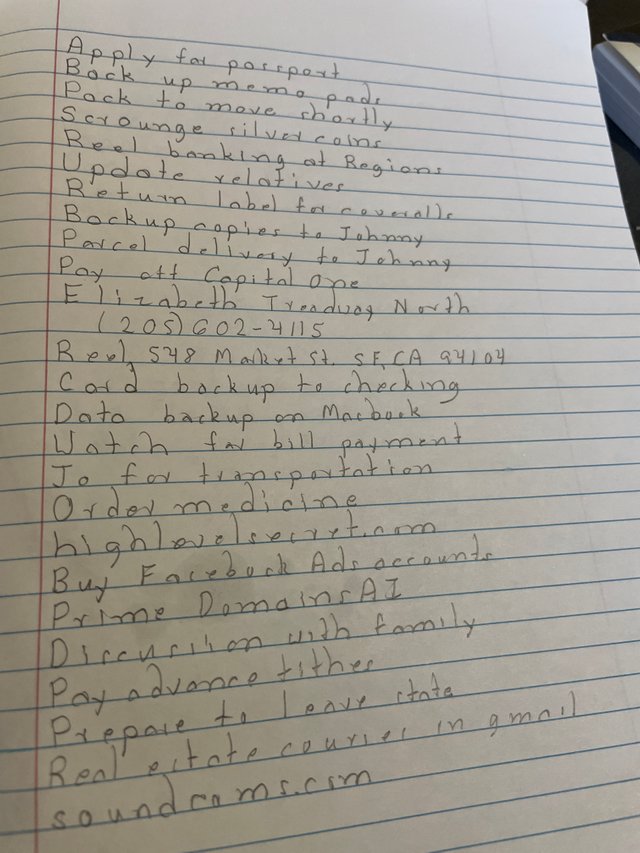 Apply for passport
Back up memo pads
Pack to move shortly
Scrounge silver coins
Reel banking at Regions
Update relatives
Return label for coveralls
Backup copies to Johnny
Parcel delivery to Johnny
Pay off Capital One
Elizabeth Treaduag North
(205) 602-4115
Reel, 548 Market St. SF, CA 94104
Card backup to checking
Data backup on Macbook
Watch for bill payment
Jo for transportation
Order medicine
highlevelsecret.com
Buy Facebook Ads accounts
Prime DomainsAI
Discussion with family
Pay advance tithes
Prepare to leave state
Real estate courses in gmail
soundcams.com